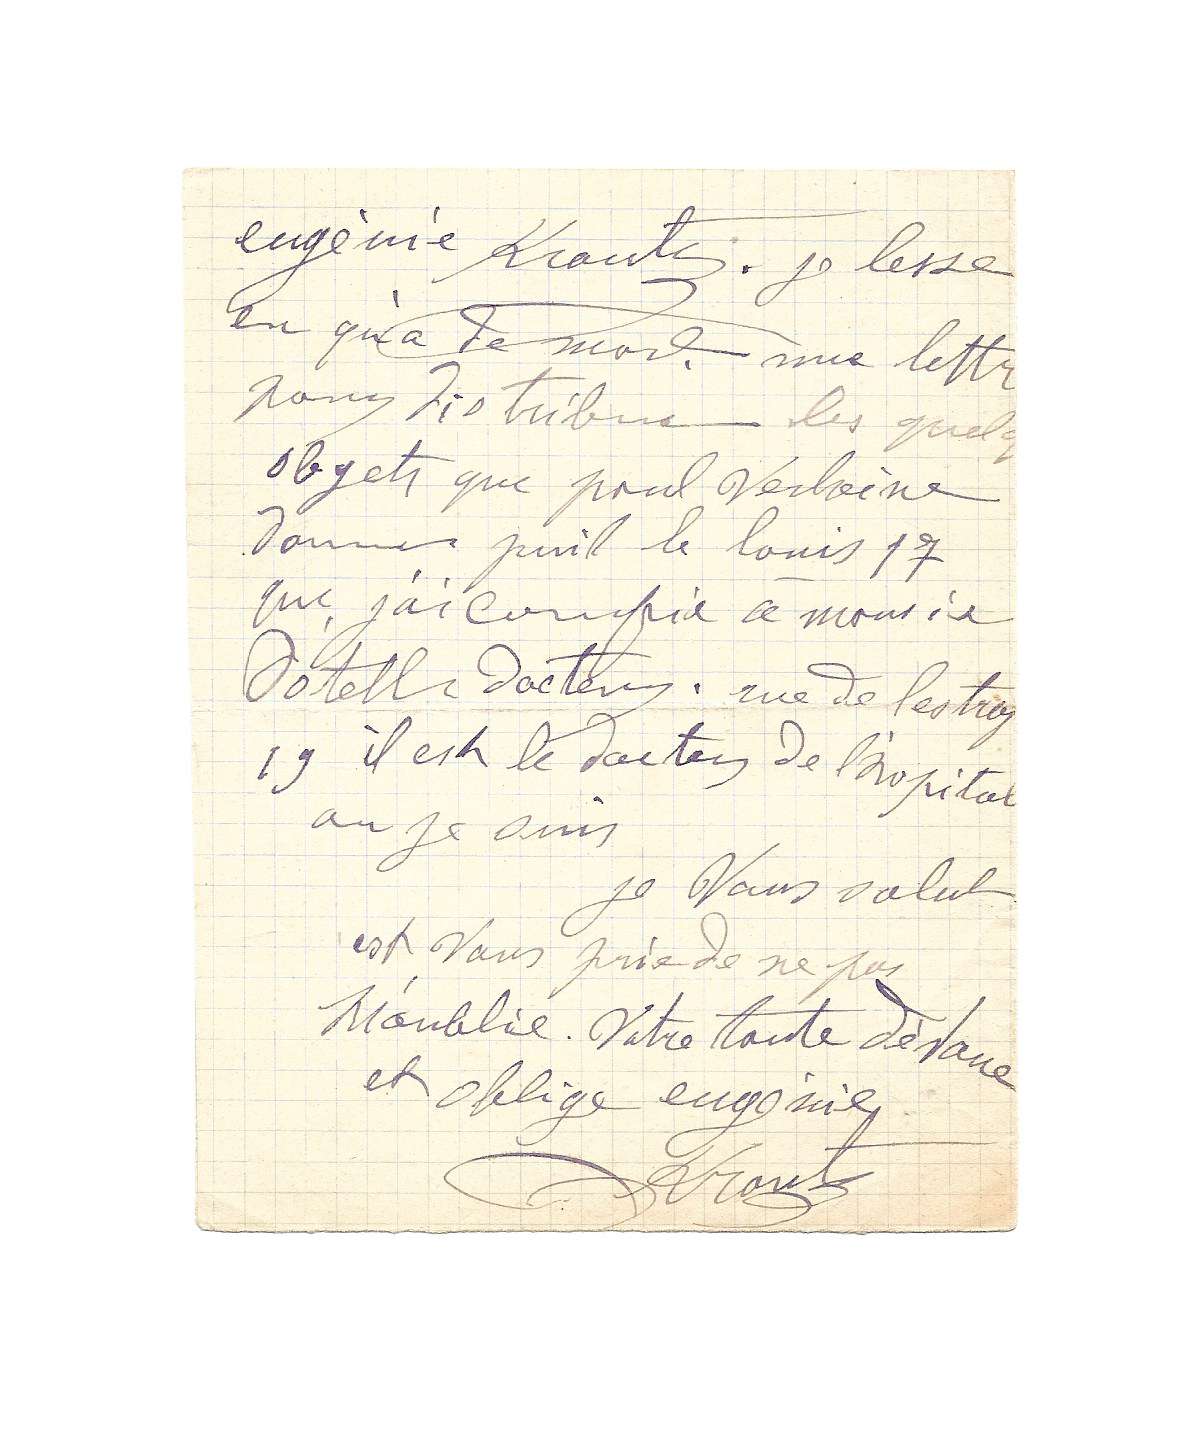 eugénie Krantz. je lesse
en qu'a de mort. une lettr
pour distribue les quelq
obgets que poul Verlaine
donner juril le louis 17
que j'ai confie a monsie
Dotelle docteur. rue de lestra
19 il est le docteur de l'hopital
ou je suis
je Vous salut
est Vous prie de ne pas
M'oublie. Votre toute dévoue
et oblige eugénie
Krantz